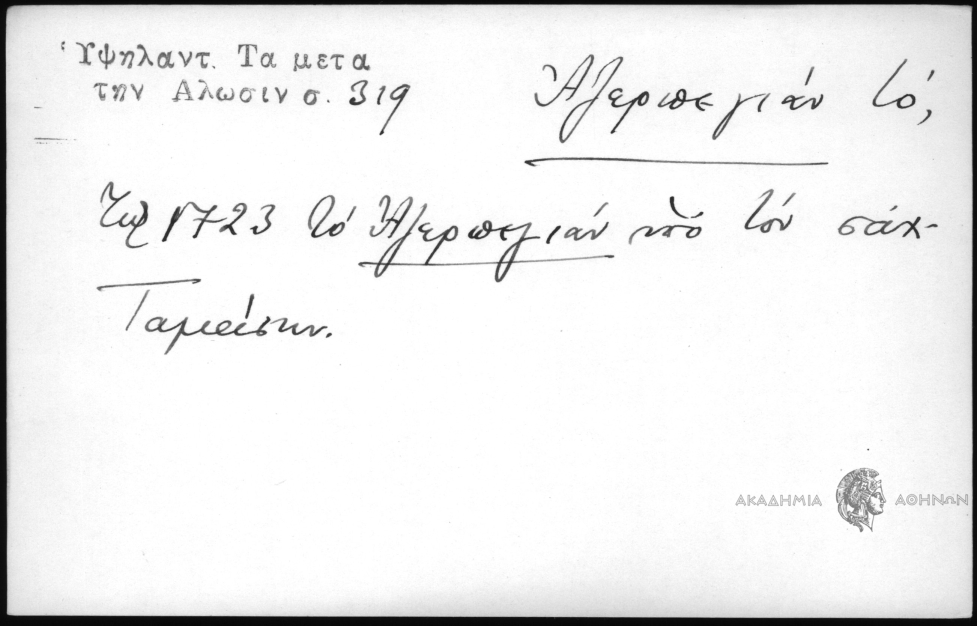 Ὑψηλαντ. Τα μετα
την Αλωσιν σ. 319
Ἀζερπεγιάν τό,
Τῷ 1723 τό Ἀζερπεγιάν ὑπό τόν σάχ-
Ταμάσην.
ΑΚΑΔΗΜΙΑ ΑΘΗΝΩΝ